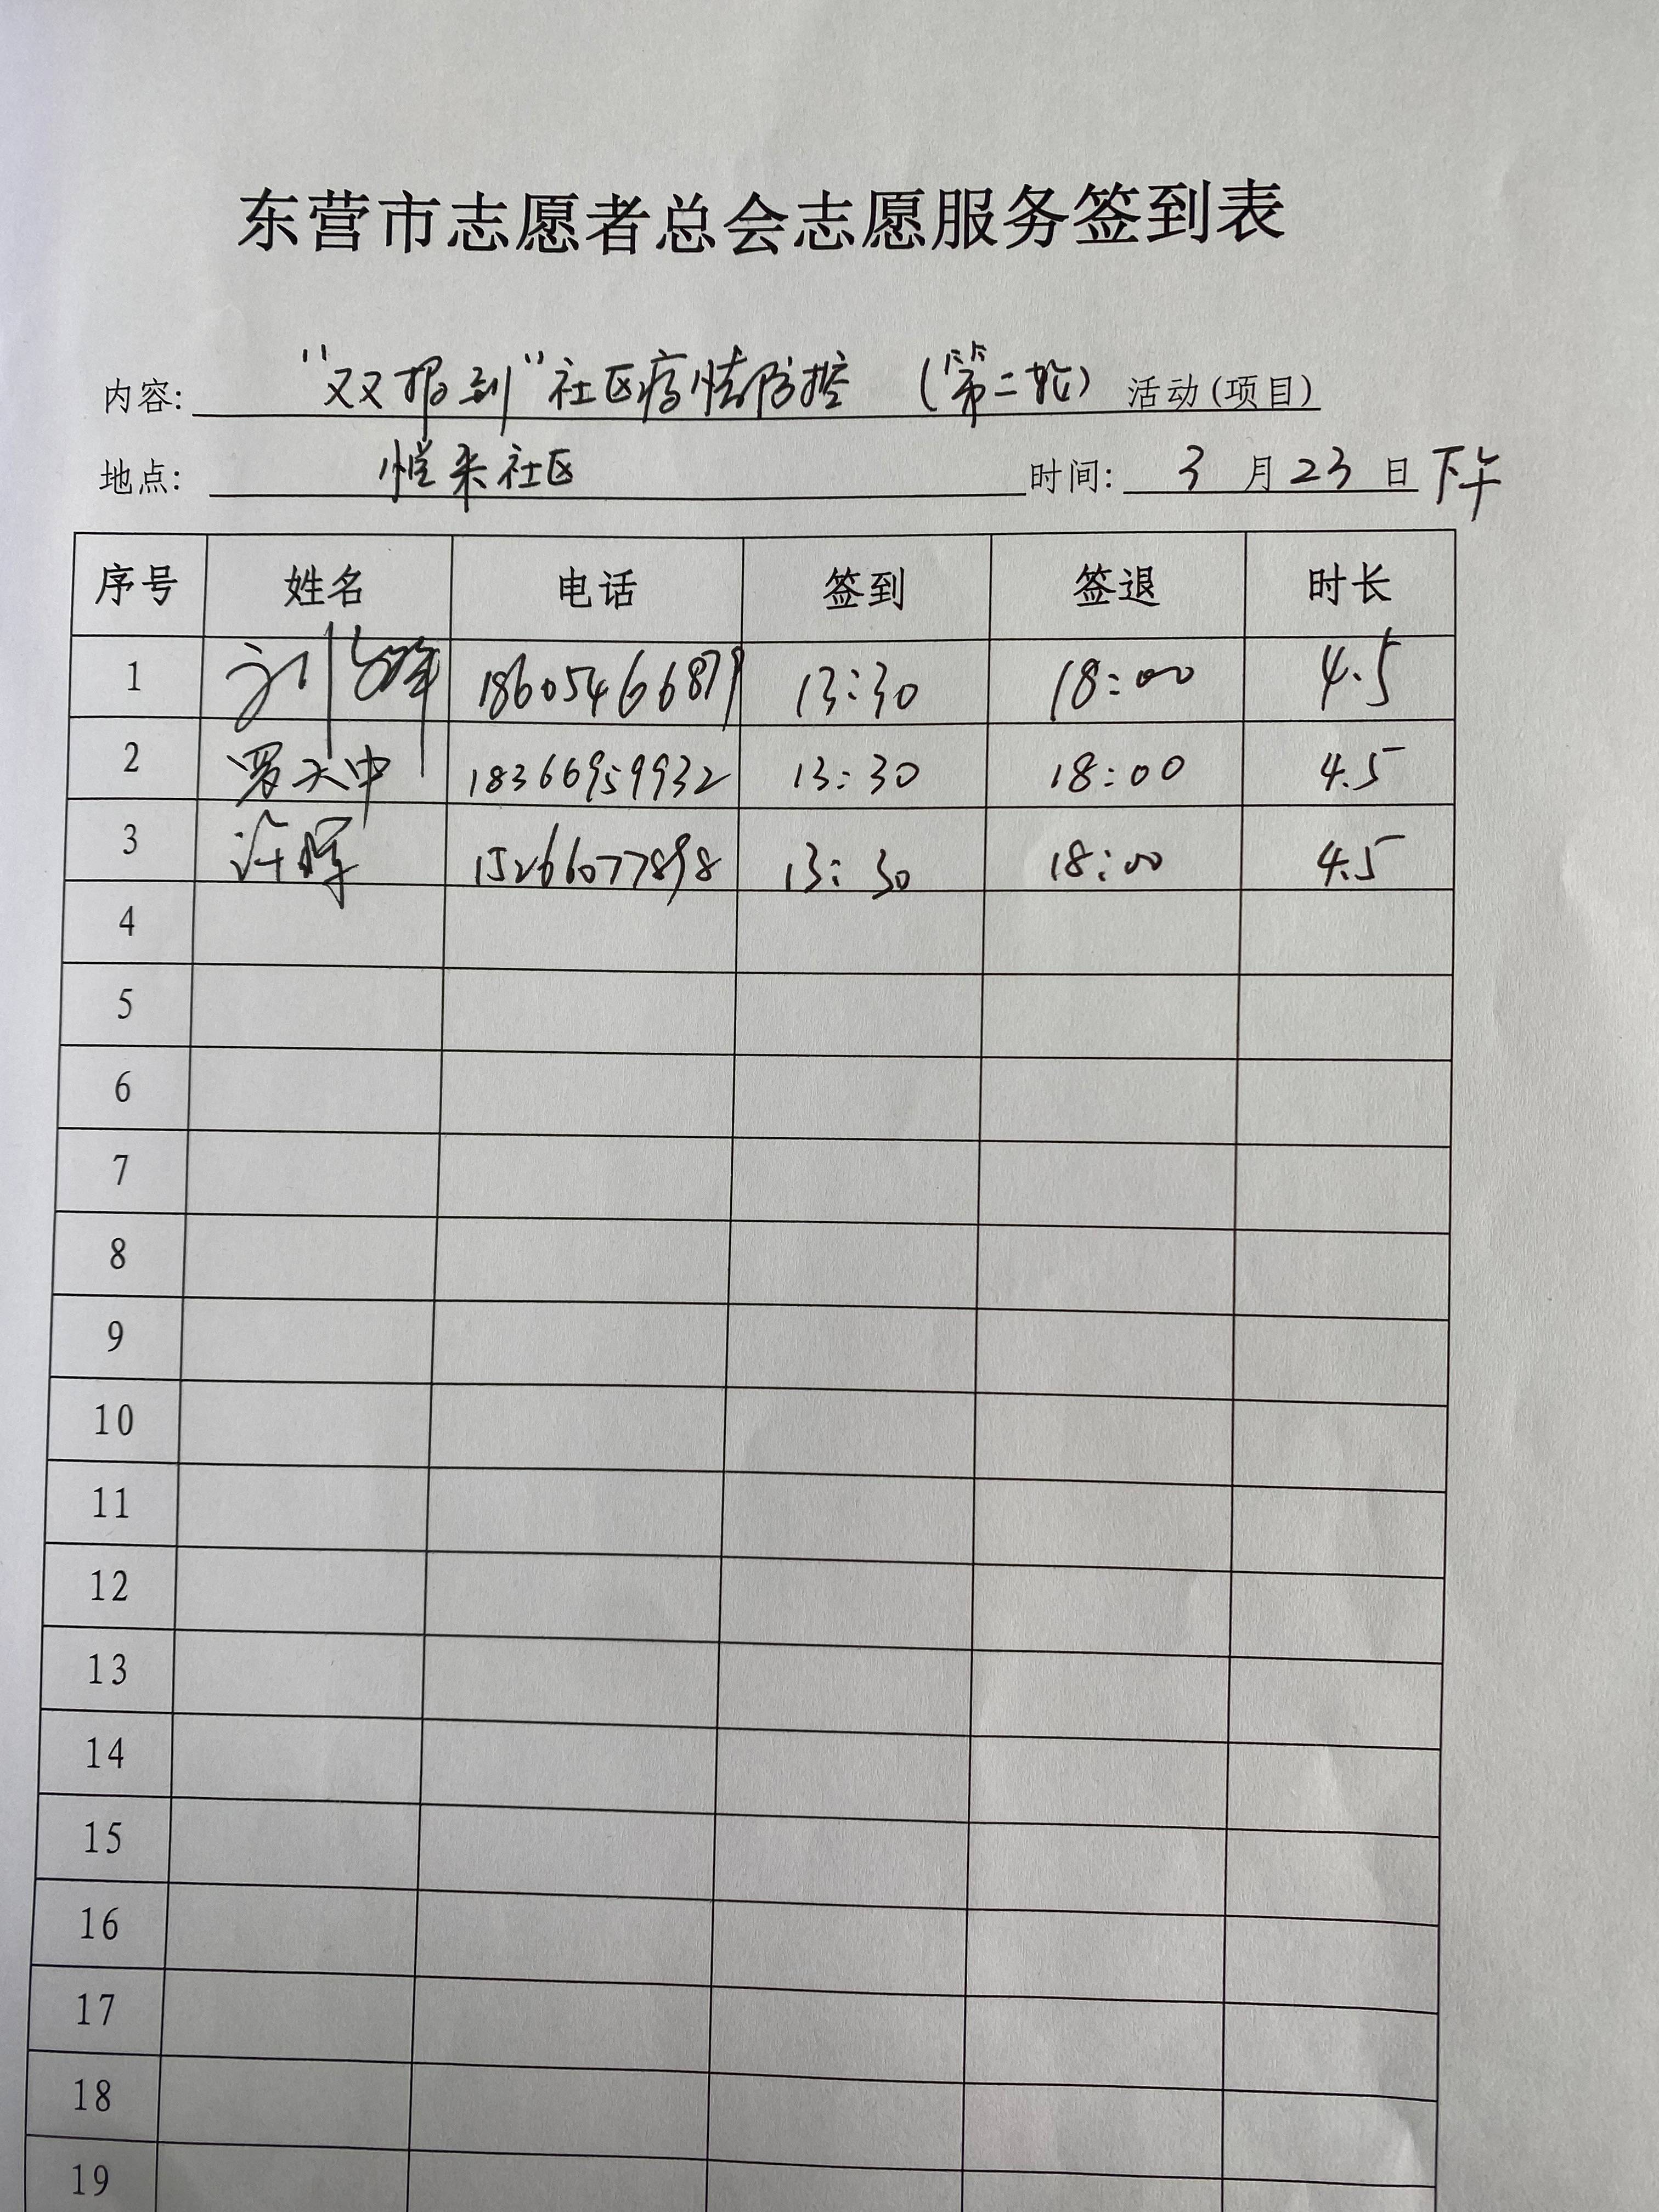 东营市志愿者总会志愿服务签到表
内容: "双报到"社区疫情防控 (第二轮) 活动(项目)
地点: 社区 时间: 3 月 23 日 下午
序号 姓名 电话 签到 签退 时长
1 刘 18605466879 13:30 18:00 4.5
2 罗天中 18366959932 13:30 18:00 4.5
3 许晖 15266077898 13:30 18:00 4.5
4
5
6
7
8
9
10
11
12
13
14
15
16
17
18
19